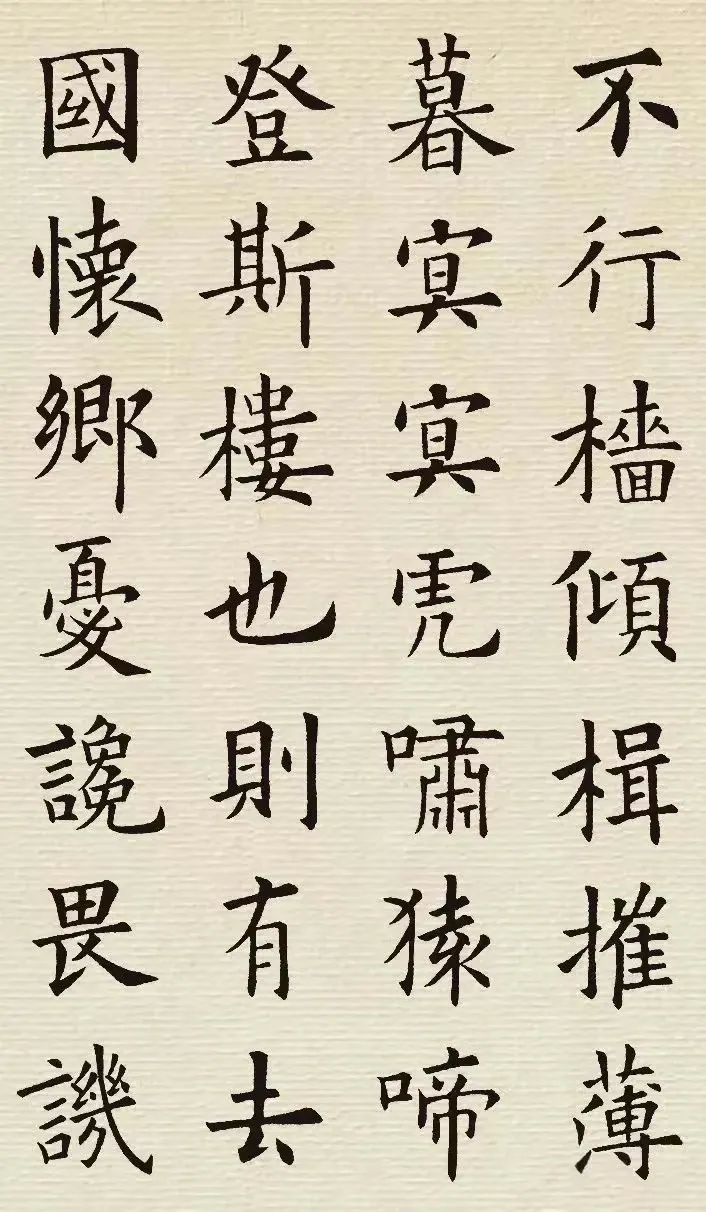 不行檣傾楫摧薄
暮冥冥虎嘯猿啼
登斯樓也則有去
國懷鄉憂讒畏譏